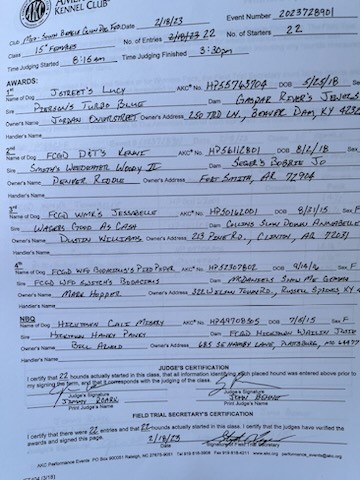 KENNEL CLUB®
Club Mid-South Beagle Gun Dog Fed Date 2/18/23 Event Number 2023728901
Class 15" Females No. of Entries 22 No. of Starters 22
Time Judging Started 8:16am Time Judging Finished 3:30pm
AWARDS:
1st
Name of Dog J Street's Lucy AKC® No. HP55765704 DOB 5/25/18 Sex
Sire Pierson's Turbo Blue Dam Gaspar River's Jewels
Owner's Name Jordan Owner's Address 250 Trd Ln., Beaver Dam, KY
Handler's Name
2nd
Name of Dog FCGD D&T's AKC® No. HP56112801 DOB 8/2/18 Sex
Sire Smith's Woody II Dam Seger's Bobbie Jo
Owner's Name Denver Riddle Owner's Address Fort Smith, AR 72904
Handler's Name
3rd
Name of Dog FCGD Wack's Jessabelle AKC® No. HP50162001 DOB 8/21/15 Sex F
Sire Wagers Good As Cash Dam Collins Sun Down Annabelle
Owner's Name Dustin Williams Owner's Address 213 Pine Rd., Clinton, AR 72031
Handler's Name
4th
Name of Dog FCGD WFD Bodacious's Pied Paper AKC® No. HP52307802 DOB Sex F
Sire FCGD WFD Switch Bodacious Dam McDaniels Show Me German
Owner's Name Mark Hopper Owner's Address Wilson Town Rd., Russell Springs, KY
Handler's Name
NBQ
Name of Dog Hicktown Calie Missry AKC® No. HP49970805 DOB 7/5/15 Sex F
Sire Hicktown Hanky Panky Dam FCGD Hicktown Wailin Josie
Owner's Name Bill Owner's Address 685 SE Hamby Lane, Plattsburg, MO 64477
Handler's Name
JUDGE'S CERTIFICATION
I certify that 22 hounds actually started in this class, that all information identifying each placed hound was entered above prior to
my signing the form, and that it corresponds with the judging of the class.
Judge's Signature Judge's Signature
Jimmy Roark John Bennet
Print Judge's Name Print Judge's Name
FIELD TRIAL SECRETARY'S CERTIFICATION
I certify that there were 22 entries and that 22 hounds actually started in this class. I certify that the judges have verified the
awards and signed this page. 2/18/23
Date Signature of Field Trial Secretary
AKC Performance Events PO Box 900051 Raleigh, NC 27675-9051 Tel 919 816-3908 Fax www.akc.org performance_events@akc.org